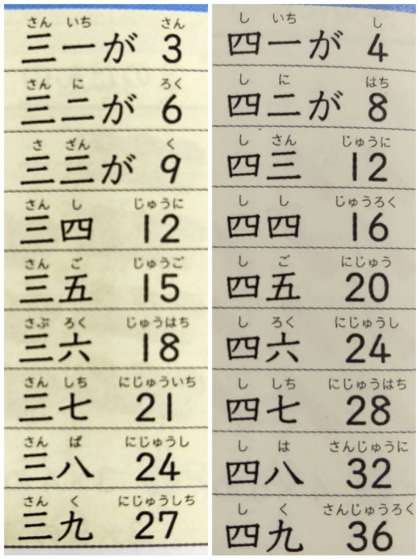 さん いち さん
三一が 3
さん に ろく
三二が 6
さ ざん く
三三が 9
さん し じゅうに
三四 12
さん ご じゅうご
三五 15
さぶ ろく じゅうはち
三六 18
さん しち にじゅういち
三七 21
さん ぱ にじゅうし
三八 24
さん く にじゅうしち
三九 27
し いち し
四一が 4
し に はち
四二が 8
し さん じゅうに
四三 12
し し じゅうろく
四四 16
し ご にじゅう
四五 20
し ろく にじゅうし
四六 24
し しち にじゅうはち
四七 28
し は さんじゅうに
四八 32
し く さんじゅうろく
四九 36